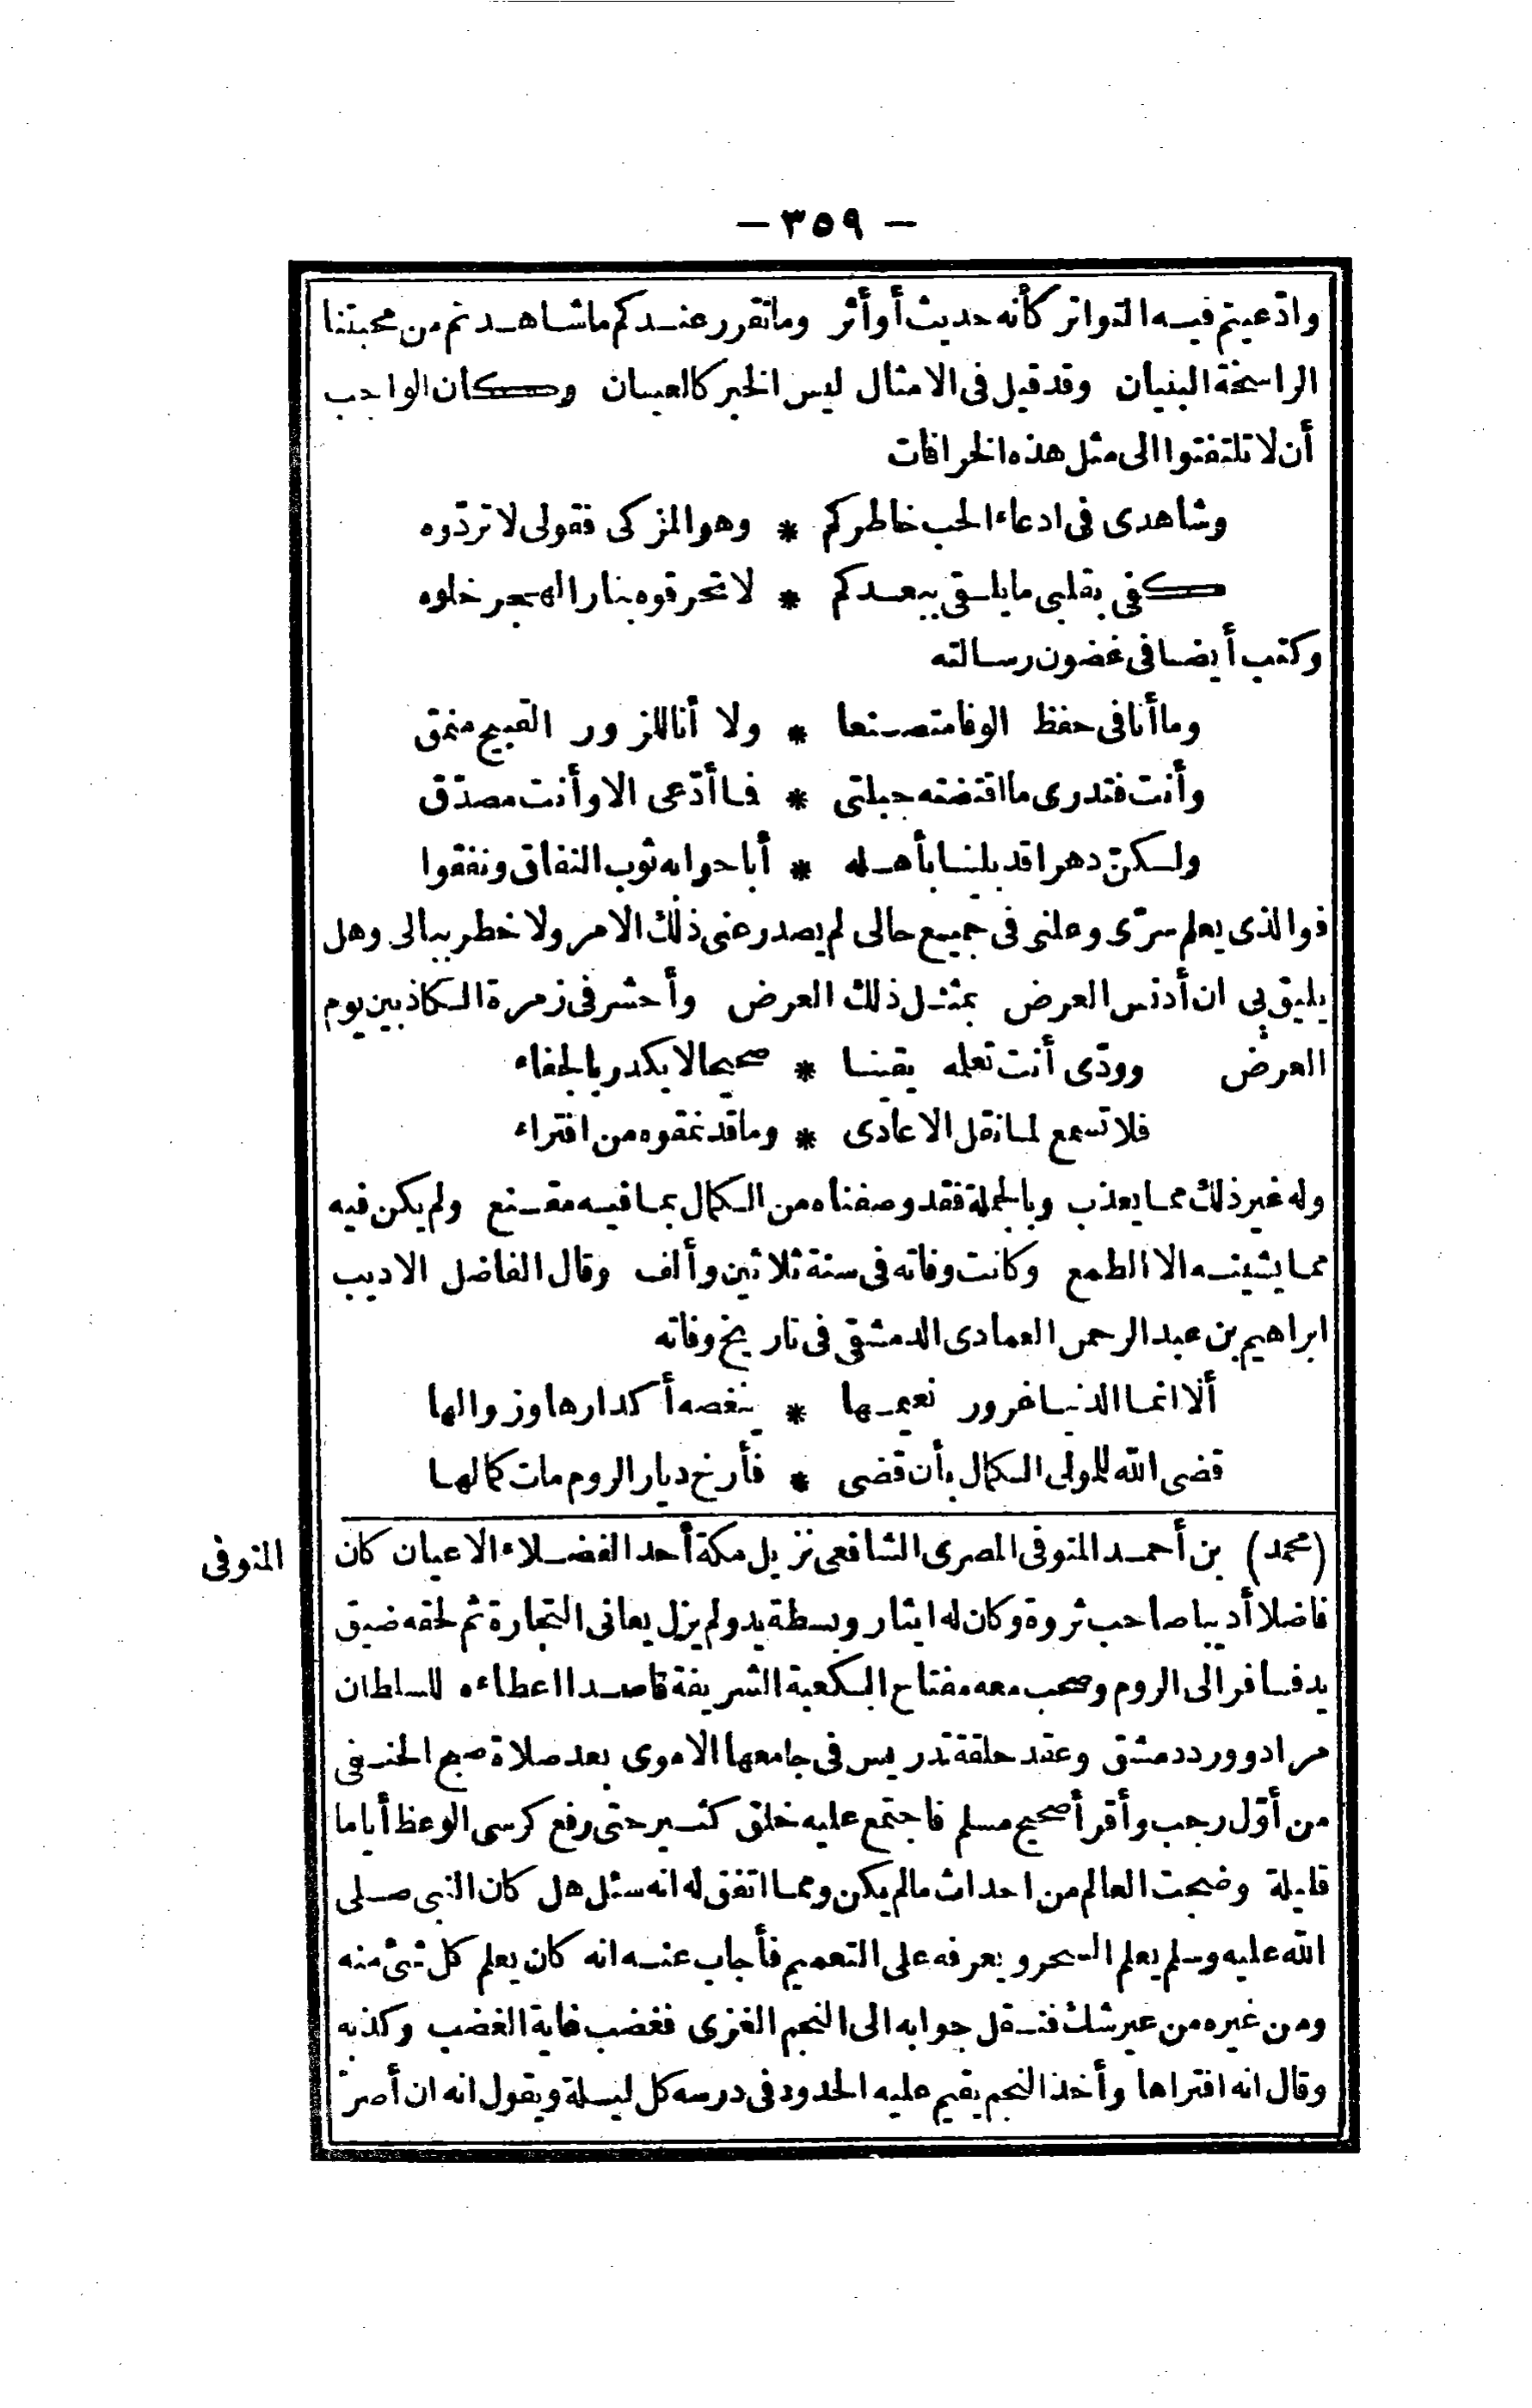 — ٣٥٩ —
وادّعيتم فيه التواتر كأنه حديث أو أثر وما تقرر عندكم ما شاهدتم من محبتنا
الراسخة البنيان وقد قيل فى الامثال ليس الخبر كالعيان وكان الواجب
أن لا تلتفتوا الى مثل هذه الخرافات
وشاهدى فى ادعاء الحب خاطركم * وهو المزكى فقولى لا تردّوه
كفى بقلبى ما يلقى ببعدكم * لا تحرقوه بنار الهجر خلوه
وكتب أيضا فى غضون رسالته
وما أنا فى حفظ الوفا متصنعا * ولا أنا للزور القبيح منمق
وأنت فتدرى ما اقتضته جبلتى * فما أدّعى الا وأنت مصدّق
ولكنّ دهرا قد بلينا بأهله * أباحوا به ثوب النفاق ونفقوا
فوالذى يعلم سرّى وعلنى فى جميع حالى لم يصدر عنى ذلك الامر ولا خطر ببالى وهل
يليق بى ان أدنس العرض بمثل ذلك العرض وأحشر فى زمرة الكاذبين يوم
العرض وودّى أنت تعله يقينا * صحيحا لا يكدر بالجفاء
فلا تسمع لما نقل الاعادى * وما قد نمقوه من افتراء
وله غير ذلك مما يعذب وبالجملة فقد وصفناه من الكمال بما فيه مقنع ولم يكن فيه
مما يشينه الا الطمع وكانت وفاته فى سنة ثلاثين وألف وقال الفاضل الاديب
ابراهيم بن عبد الرحمن العمادى الدمشقى فى تاريخ وفاته
ألا انما الدنيا غرور نعيمها * ينغصه أكدارها وزوالها
قضى الله للمولى الكمال بأن قضى * فأرخ ديار الروم مات كمالها
(محمد) بن أحمد المنوفى المصرى الشافعى نزيل مكة أحد الفضلاء الاعيان كان
المنوفى
فاضلا أديبا صاحب ثروة وكان له ايثار وبسطة يد ولم يزل يعانى التجارة ثم لحقه ضيق
يد فسافر الى الروم وصحب معه مفتاح الكعبة الشريفة قاصدا اعطاءه للسلطان
مراد وورد دمشق وعقد حلقة تدريس فى جامعها الاموى بعد صلاة صبح الحنفى
من أوّل رجب وأقرأ صحيح مسلم فاجتمع عليه خلق كثير حتى رفع كرسى الوعظ أياما
قليلة وضجت العالم من احداث ما لم يكن ومما اتفق له انه سئل هل كان النبى صلى
الله عليه وسلم يعلم السحر ويعرفه على التعميم فأجاب عنه انه كان يعلم كل شئ منه
ومن غيره من غير شك فنقل جوابه الى النجم الغزى فغضب غاية الغضب وكذبه
وقال انه افتراها وأخذ النجم يقيم عليه الحدود فى درسه كل ليلة ويقول انه ان أصرّ